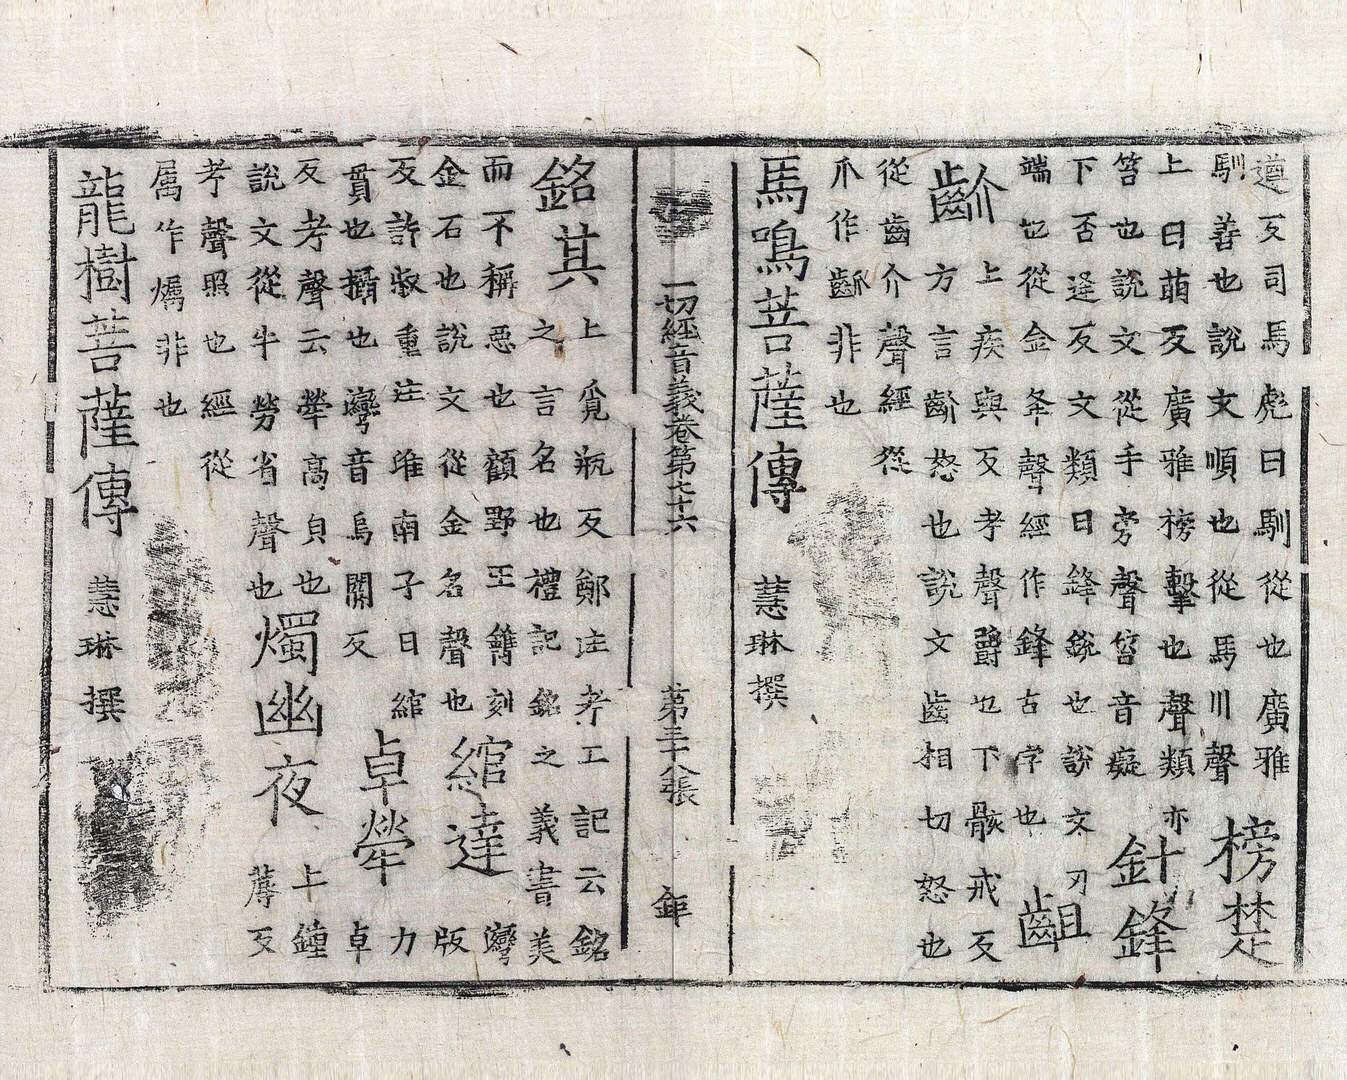 遵反司馬彪曰馴從也廣雅
馴善也說文順也從馬川聲 榜楚
上曰萠反廣雅榜擊也聲類亦
笞也說文從手旁聲笞音癡 針鋒
下否逢反文類曰鋒銳也說文刃
端也從金夆聲經作鋒古字也 齟
齘 上疾與反考聲齚也下骸戒反
方言齘怒也說文齒相切怒也
從齒介聲經從
爪作非也
馬鳴菩薩傳 慧琳撰
一切經音義卷第七十六 第三十八張 鉅
銘其 上覓瓶反鄭注考工記云銘
之言名也禮記銘之義書美
而不稱惡也顧野王鐫刻
金石也說文從金名聲也 綰達 彎版
反許叔重注淮南子曰綰
貫也攝也彎音烏關反 卓犖 力卓
反考聲云犖高貞也
說文從牛勞省聲也 燭幽夜 上鐘蓐反
考聲照也經從
屬作爥非也
龍樹菩薩傳 慧琳撰